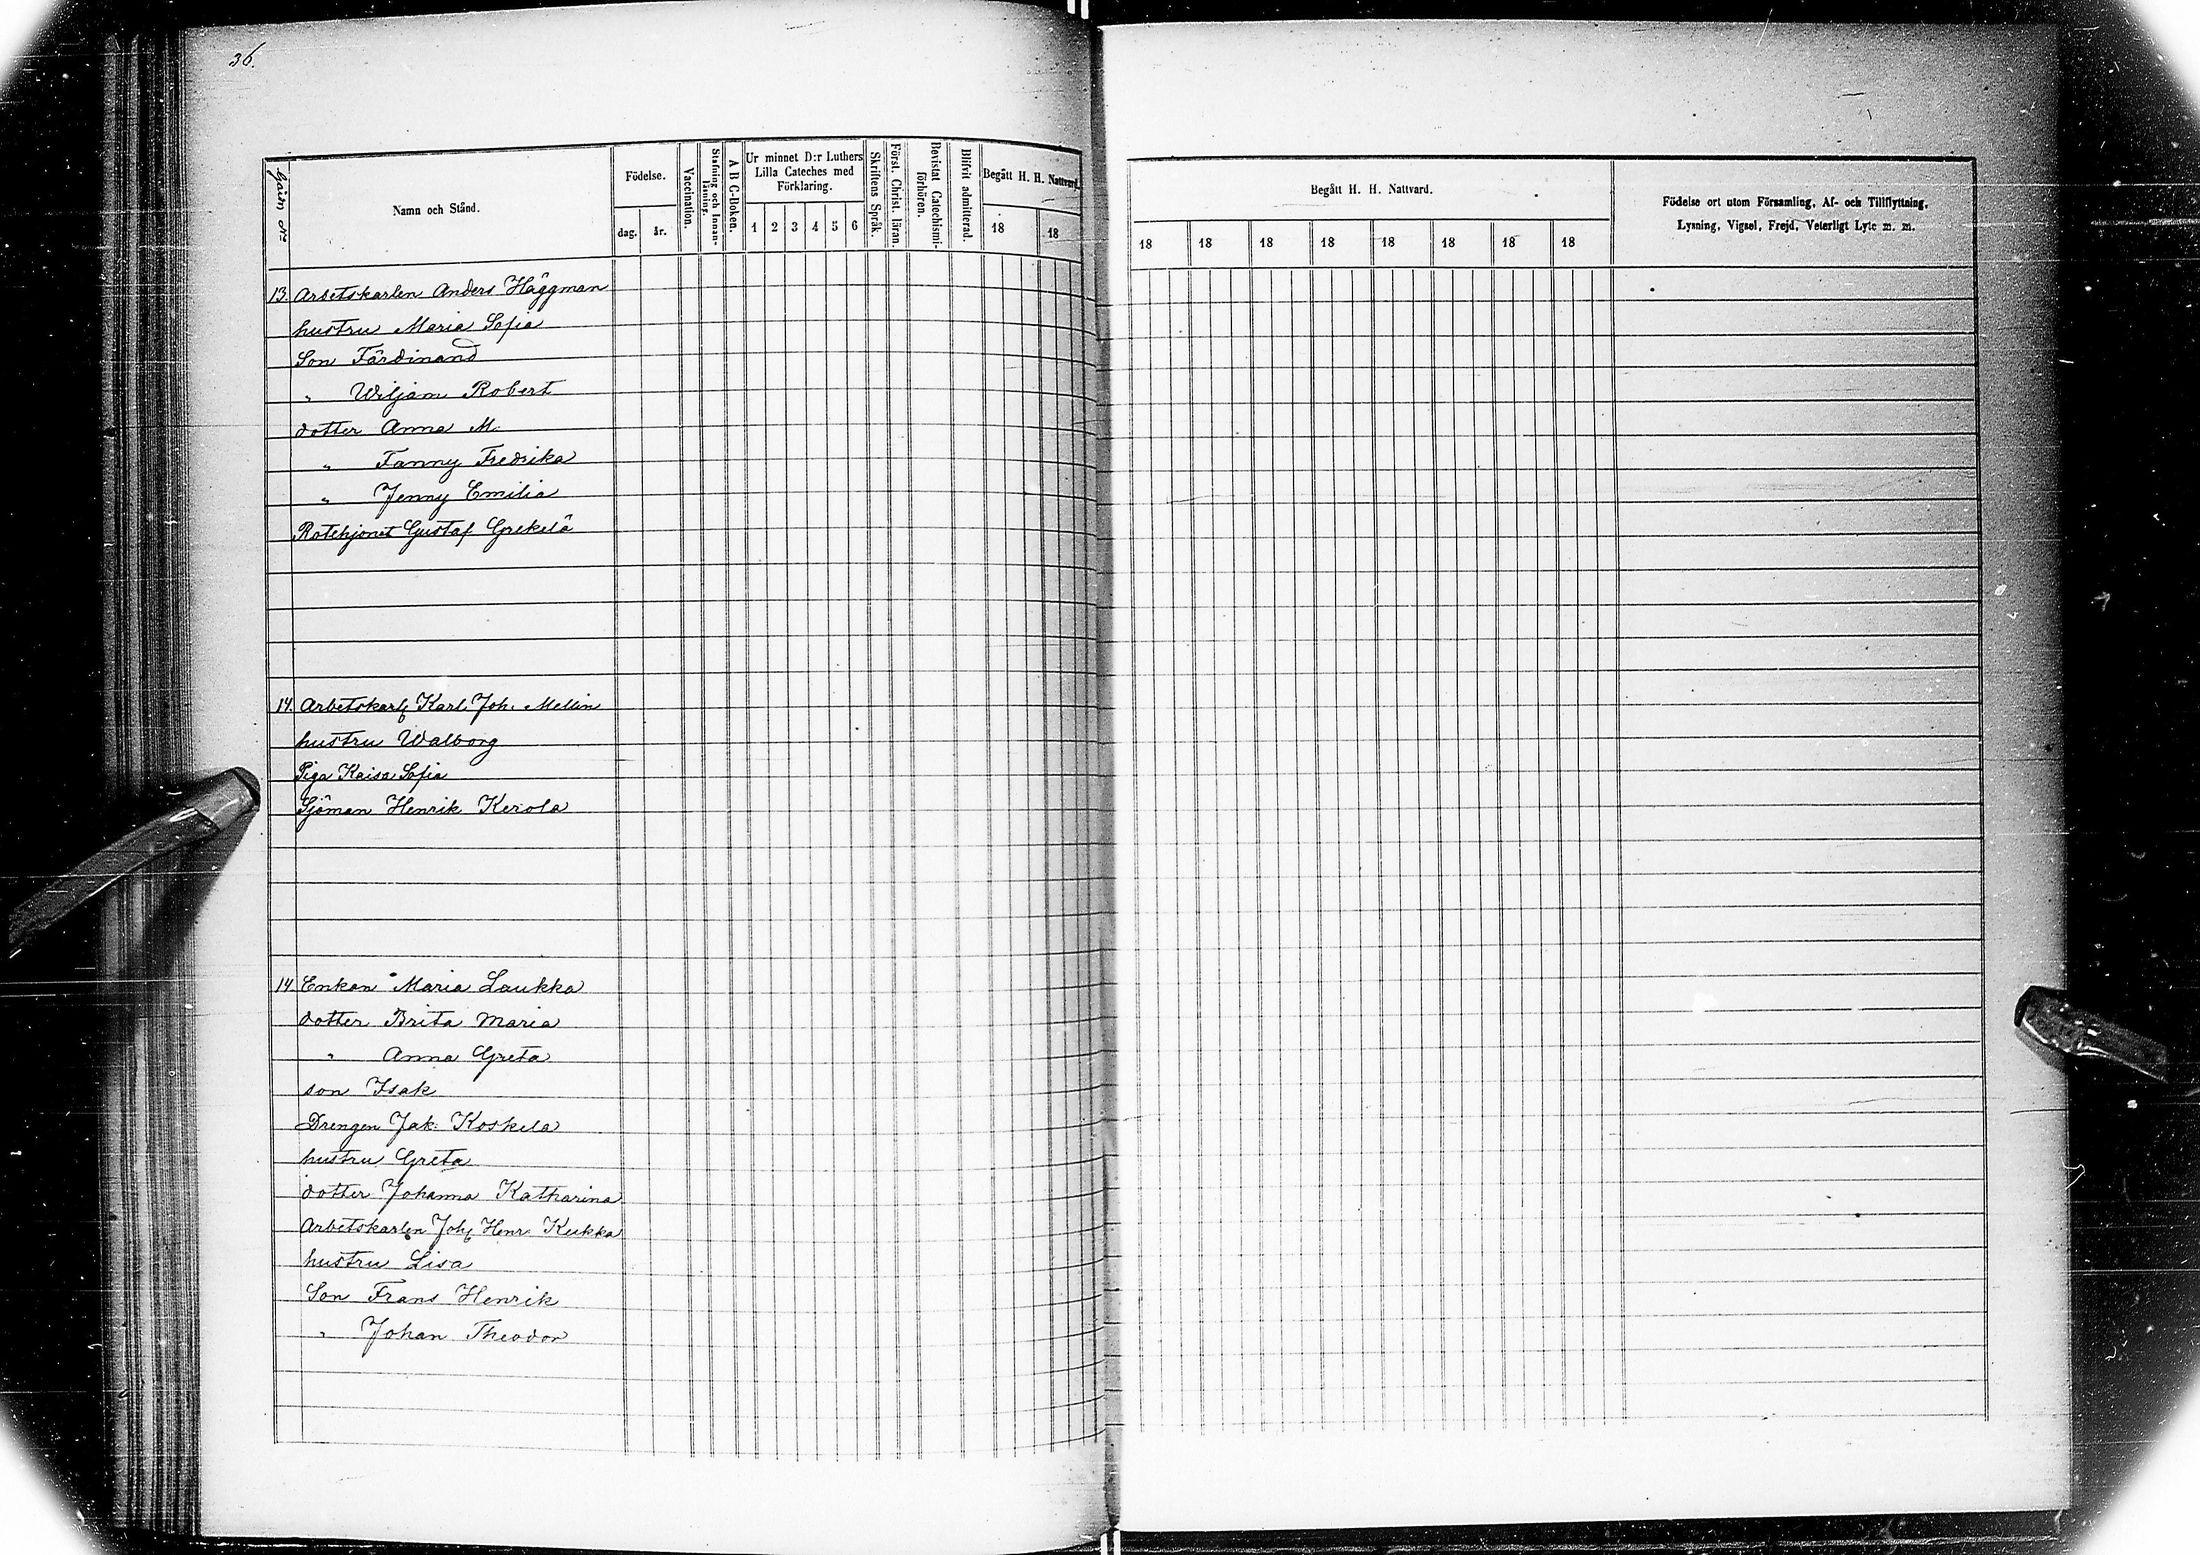 36.
Gård No
Namn och Stånd.
Födelse.
dag.
år.
Vaccination.
Stafning och Innanläsning.
A B C-Boken.
Ur minnet D:r Luthers
Lilla Cateches med
Förklaring.
1 2 3 4 5 6
Skriftens Språk.
Först. Christ. läran.
Bevistat Catechismi-
förhören.
Blifvit admitterad.
Begått H. H. Nattvard.
18 18
Begått H. H. Nattvard.
18 18 18 18 18 18 18 18
Födelse ort utom Församling, Af- och Tillflyttning,
Lysning, Vigsel, Frejd, Veterligt Lyte m. m.
13. Arbetskarlen Anders Häggman
hustru Maria Sofia
Son Färdinand
" Wiljam Robert
dotter Anna M.
" Fanny Fredrika
" Jenny Emilia
Rotehjonet Gustaf Grekelä
14. Arbetskarln Karl Joh. Mellin
hustru Walborg
Piga Kaisa Sofia
Sjöman Henrik Kerola
14 Enkan Maria Laukka
dotter Brita Maria
" Anna Greta
son Isak
Drengen Jak. Koskela
hustru Greta
dotter Johanna Katharina
Arbetskarlen Joh Henr. Kukka
hustru Lisa
Son Frans Henrik
" Johan Theodor